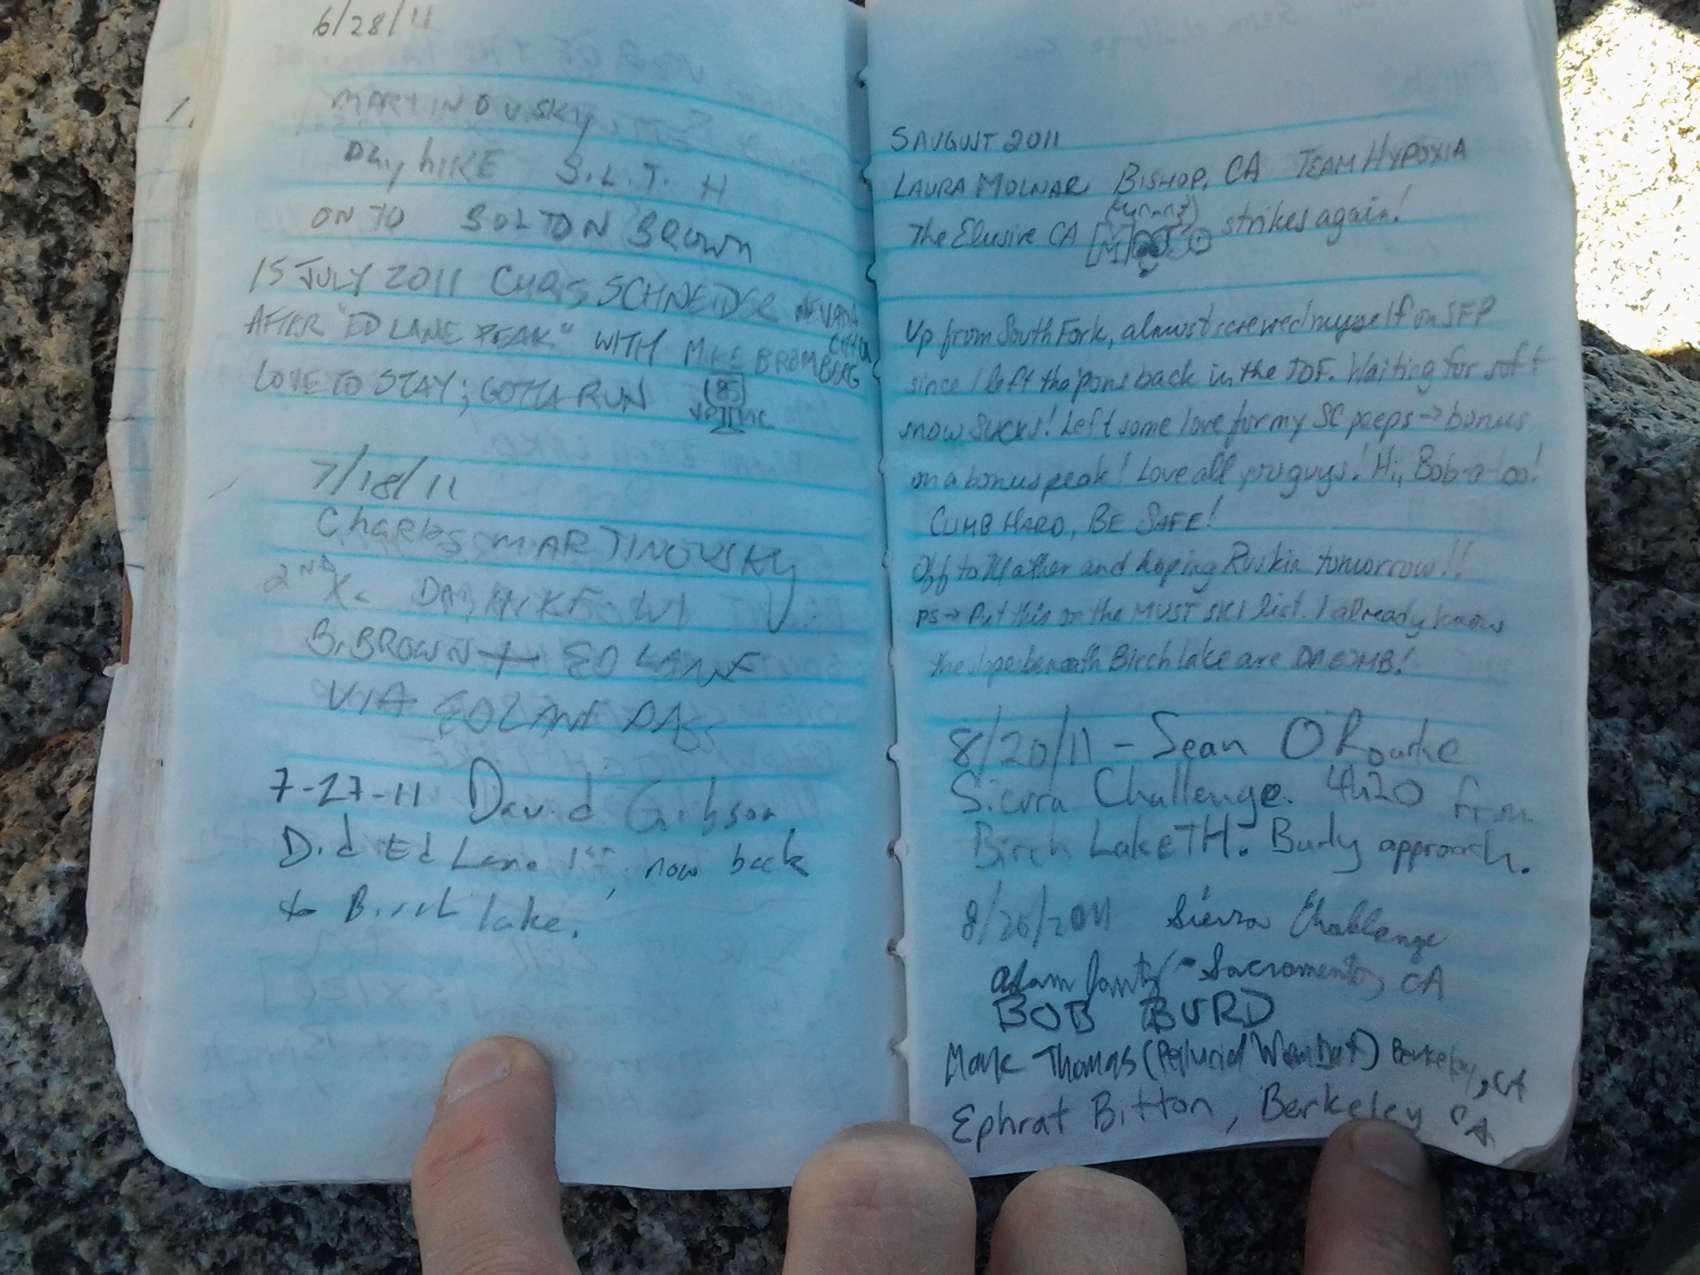 6/28/11
MARTINOVSKY
Day hIKE B.L.T.H
ON TO BOLTON BROWN
15 JULY 2011 CHRIS SCHNEIDER NEVADA CITY CA
AFTER "ED LANE PEAK" WITH MIKE BROMBERG
LOVE TO STAY; GOTTA RUN 85
7/18/11
Charles MARTINOVSKY
2ND X. DAY HIKE W/
B. BROWN + ED LANE
VIA ED LANE PASS
7-27-11 David Gibson
Did Ed Lane 1st, now back
to Birch lake.
5 AUGUST 2011
LAURA MOLNAR, BISHOP, CA TEAM HYPOXIA
The Elusive CA strikes again!
Up from South Fork, almost screwed myself on SFP
since I left the 'pons back in the TOF. Waiting for soft
snow sucks! Left some love for my SC peeps → bonus
on a bonus peak! Love all you guys! Hi, Bob-a-loo!
CLIMB HARD, BE SAFE!
Off to Mather and hoping Ruskie tomorrow!!
PS → Put this on the MUST SKI list. I already know
the slope beneath Birch Lake are DA BOMB!
8/20/11 - Sean O'Rourke
Sierra Challenge. 4h20 from
Birch Lake TH. Burly approach.
8/20/2011 Sierra Challenge
Adam Jantz - Sacramento, CA
BOB BURD
Mark Thomas (Pellucid Wombat) Berkeley, CA
Ephrat Bitton, Berkeley CA